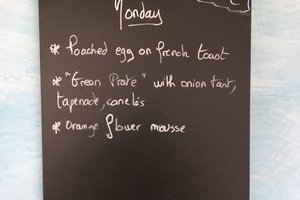 Monday
* Poached egg on french toast
* "Green Prate" with onion tart,
tapenade, canelés
* Orange flower mousse